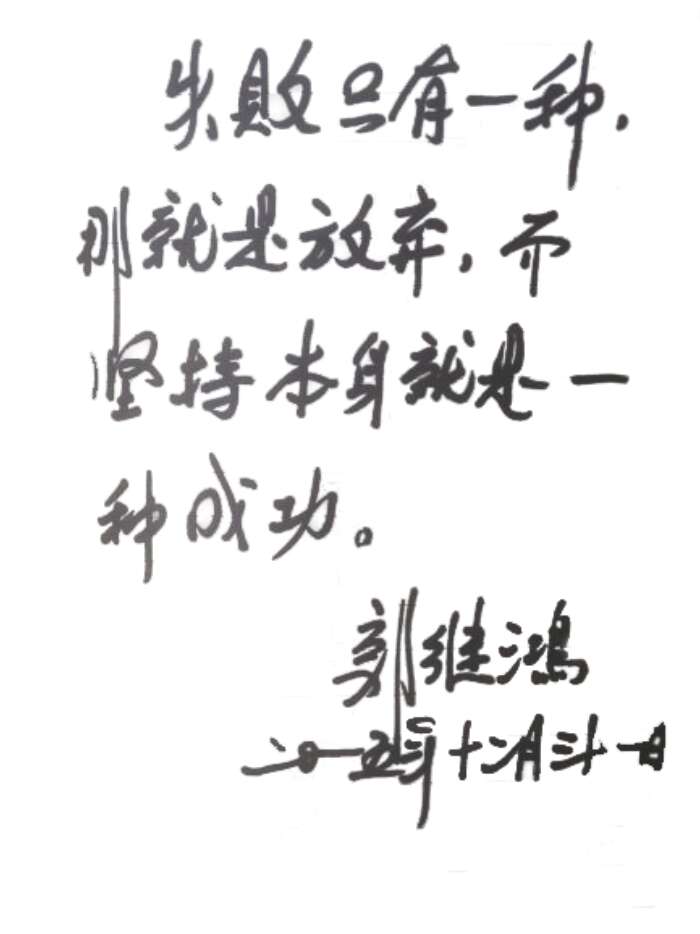 失败只有一种，
那就是放弃，而
坚持本身就是一
种成功。
刘继鸿
二〇一五年十二月三十一日